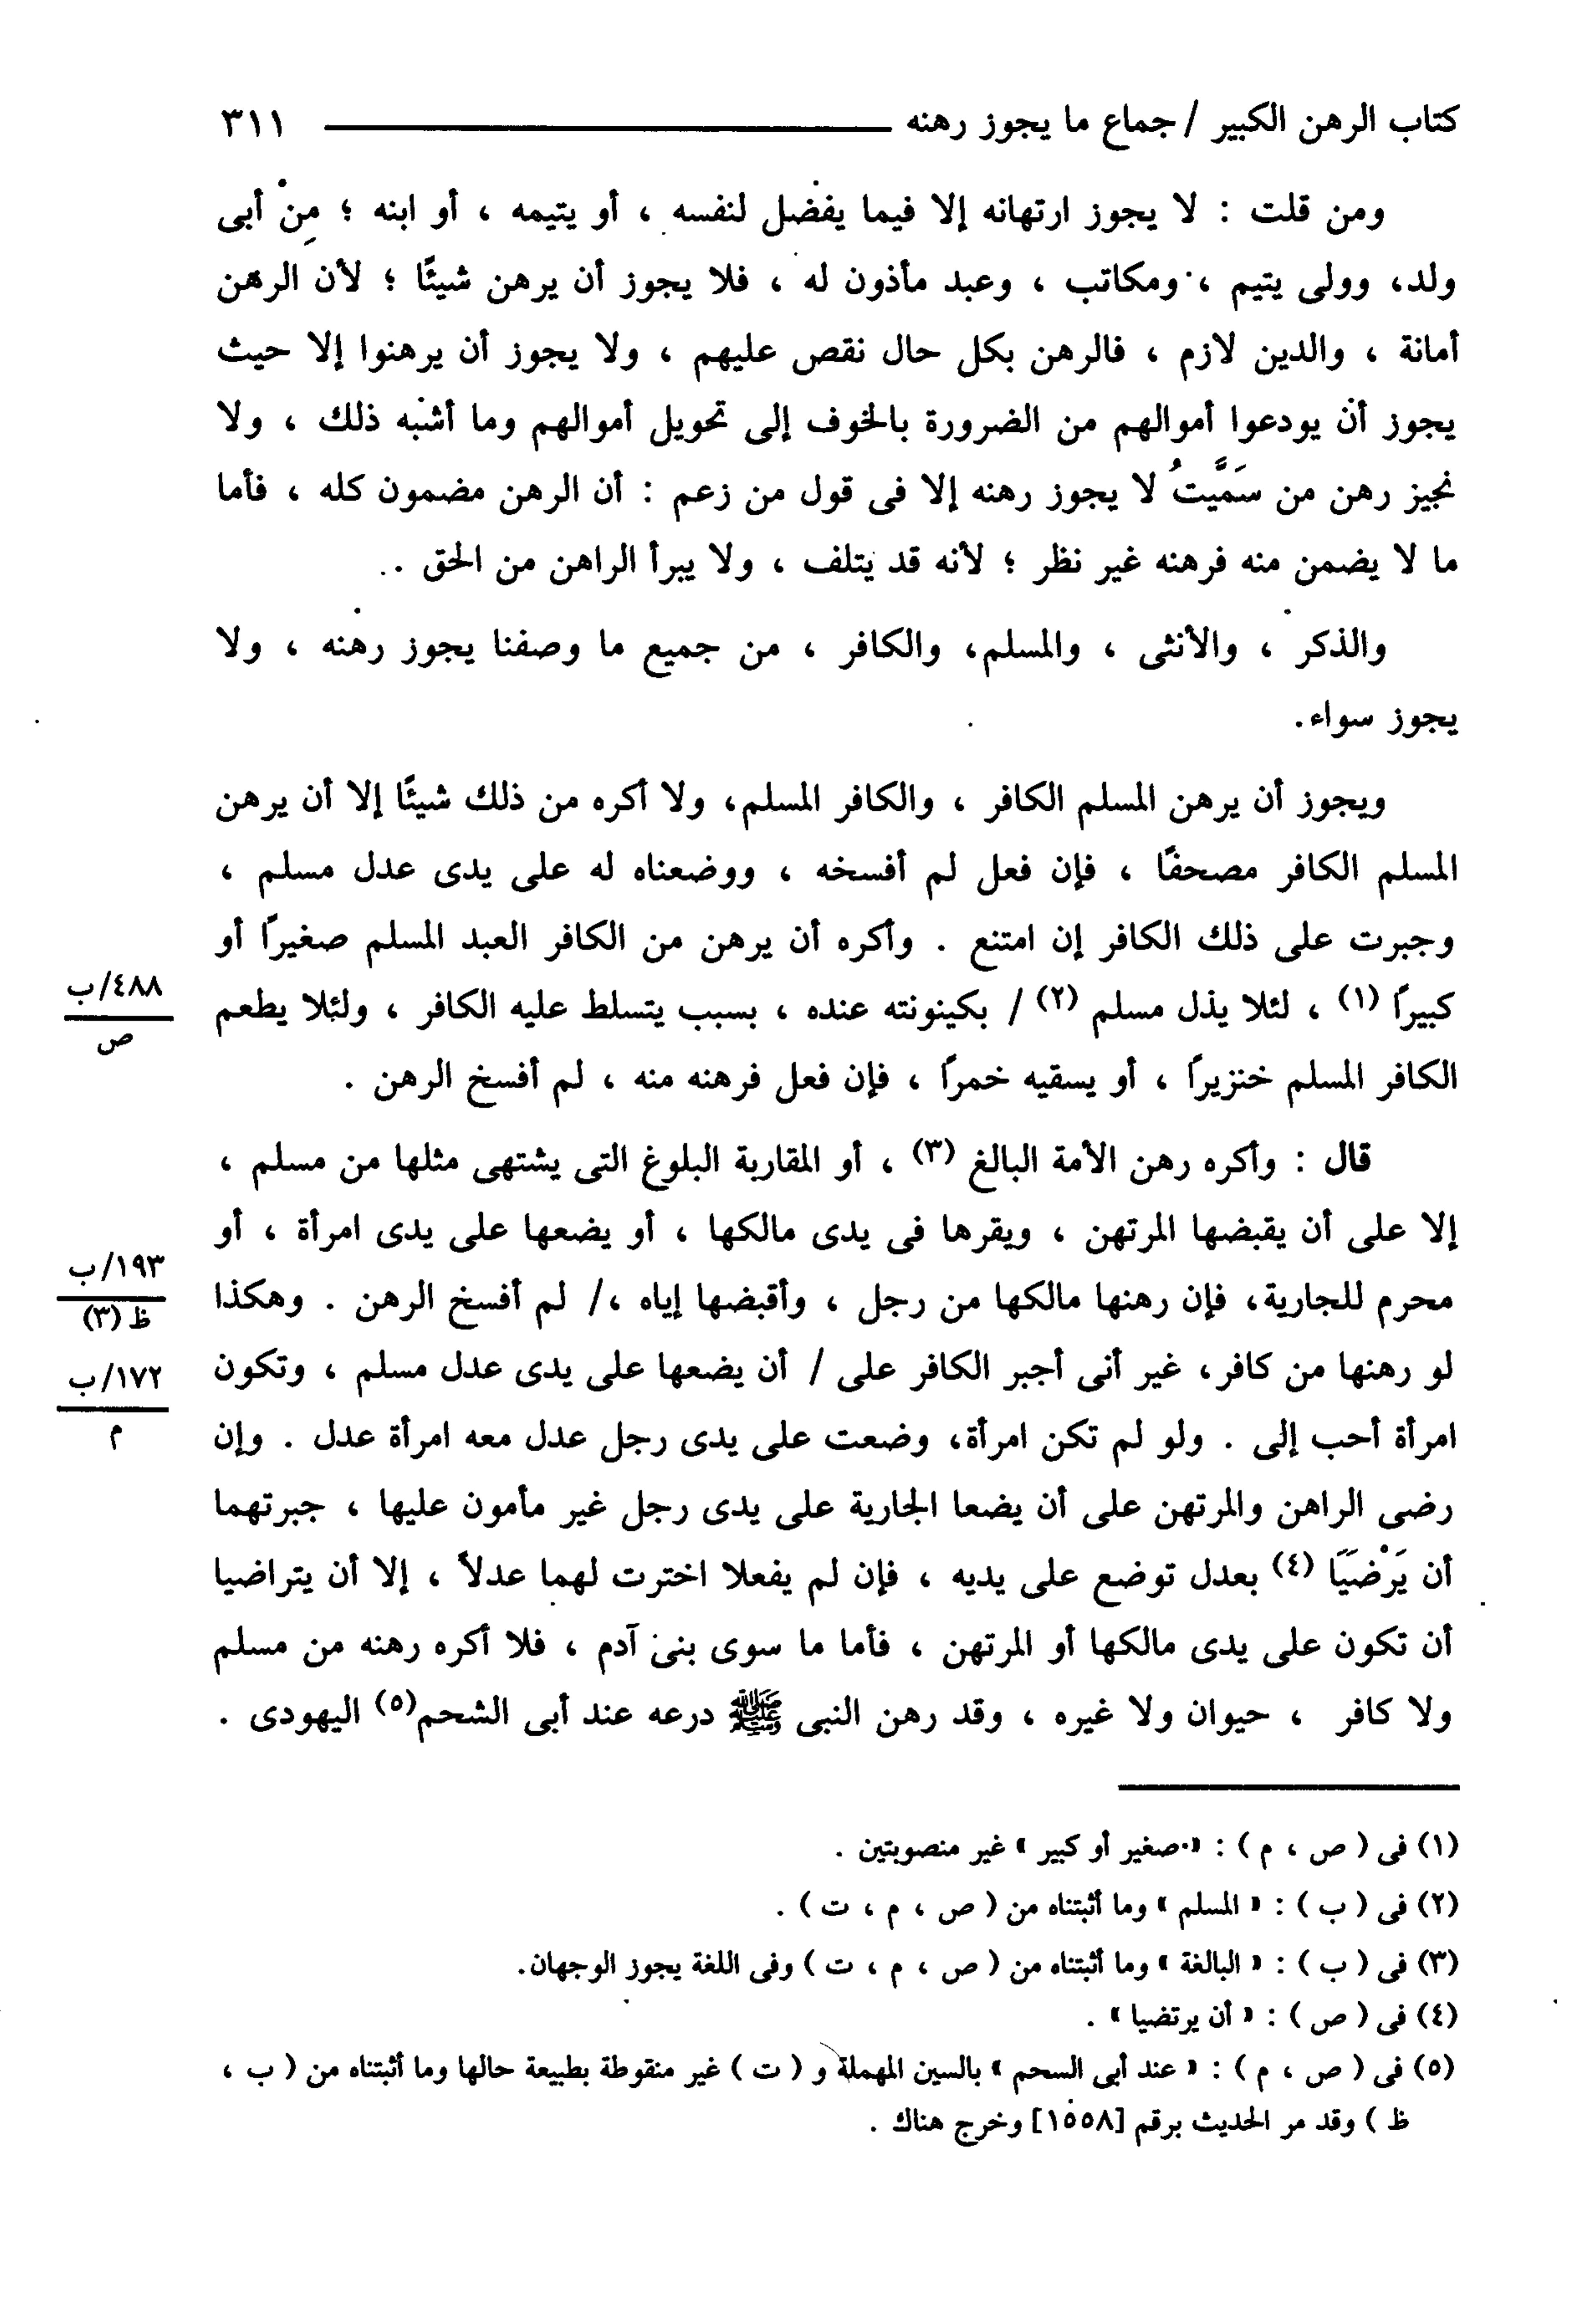 كتاب الرهن الكبير / جماع ما يجوز رهنه ٣١١
ومن قلت : لا يجوز ارتهانه إلا فيما يفضل لنفسه ، أو يتيمه ، أو ابنه ؛ مِنْ أبى
ولد، وولى يتيم ، ومكاتب ، وعبد مأذون له ، فلا يجوز أن يرهن شيئًا ؛ لأن الرهن
أمانة ، والدين لازم ، فالرهن بكل حال نقص عليهم ، ولا يجوز أن يرهنوا إلا حيث
يجوز أن يودعوا أموالهم من الضرورة بالخوف إلى تحويل أموالهم وما أشبه ذلك ، ولا
نجيز رهن من سَمَّيتُ لا يجوز رهنه إلا فى قول من زعم : أن الرهن مضمون كله ، فأما
ما لا يضمن منه فرهنه غير نظر ؛ لأنه قد يتلف ، ولا يبرأ الراهن من الحق .
والذكر ، والأنثى ، والمسلم، والكافر ، من جميع ما وصفنا يجوز رهنه ، ولا
يجوز سواء.
ويجوز أن يرهن المسلم الكافر ، والكافر المسلم، ولا أكره من ذلك شيئًا إلا أن يرهن
المسلم الكافر مصحفًا ، فإن فعل لم أفسخه ، ووضعناه له على يدى عدل مسلم ،
وجبرت على ذلك الكافر إن امتنع . وأكره أن يرهن من الكافر العبد المسلم صغيرًا أو
كبيرًا (١) ، لئلا يذل مسلم (٢) / بكينونته عنده ، بسبب يتسلط عليه الكافر ، ولئلا يطعم
٤٨٨/ب
ص
الكافر المسلم خنزيرًا ، أو يسقيه خمرًا ، فإن فعل فرهنه منه ، لم أفسخ الرهن .
قال : وأكره رهن الأمة البالغ (٣) ، أو المقاربة البلوغ التى يشتهى مثلها من مسلم ،
إلا على أن يقبضها المرتهن ، ويقرها فى يدى مالكها ، أو يضعها على يدى امرأة ، أو
محرم للجارية، فإن رهنها مالكها من رجل ، وأقبضها إياه ،/ لم أفسخ الرهن . وهكذا
١٩٣/ب
ظ (٣)
لو رهنها من كافر، غير أنى أجبر الكافر على / أن يضعها على يدى عدل مسلم ، وتكون
١٧٢/ب
م
امرأة أحب إلى . ولو لم تكن امرأة، وضعت على يدى رجل عدل معه امرأة عدل . وإن
رضى الراهن والمرتهن على أن يضعا الجارية على يدى رجل غير مأمون عليها ، جبرتهما
أن يَرْضَيَا (٤) بعدل توضع على يديه ، فإن لم يفعلا اخترت لهما عدلاً ، إلا أن يتراضيا
أن تكون على يدى مالكها أو المرتهن ، فأما ما سوى بنى آدم ، فلا أكره رهنه من مسلم
ولا كافر ، حيوان ولا غيره ، وقد رهن النبى ﷺ درعه عند أبى الشحم(٥) اليهودى .
(١) فى ( ص ، م ) : « صغير أو كبير » غير منصوبتين .
(٢) فى ( ب ) : « المسلم » وما أثبتناه من ( ص ، م ، ت ) .
(٣) فى ( ب ) : « البالغة » وما أثبتناه من ( ص ، م ، ت ) وفى اللغة يجوز الوجهان.
(٤) فى ( ص ) : « أن يرتضيا » .
(٥) فى ( ص ، م ) : « عند أبى السحم » بالسين المهملة و ( ت ) غير منقوطة بطبيعة حالها وما أثبتناه من ( ب ،
ظ ) وقد مر الحديث برقم [١٥٥٨] وخرج هناك .